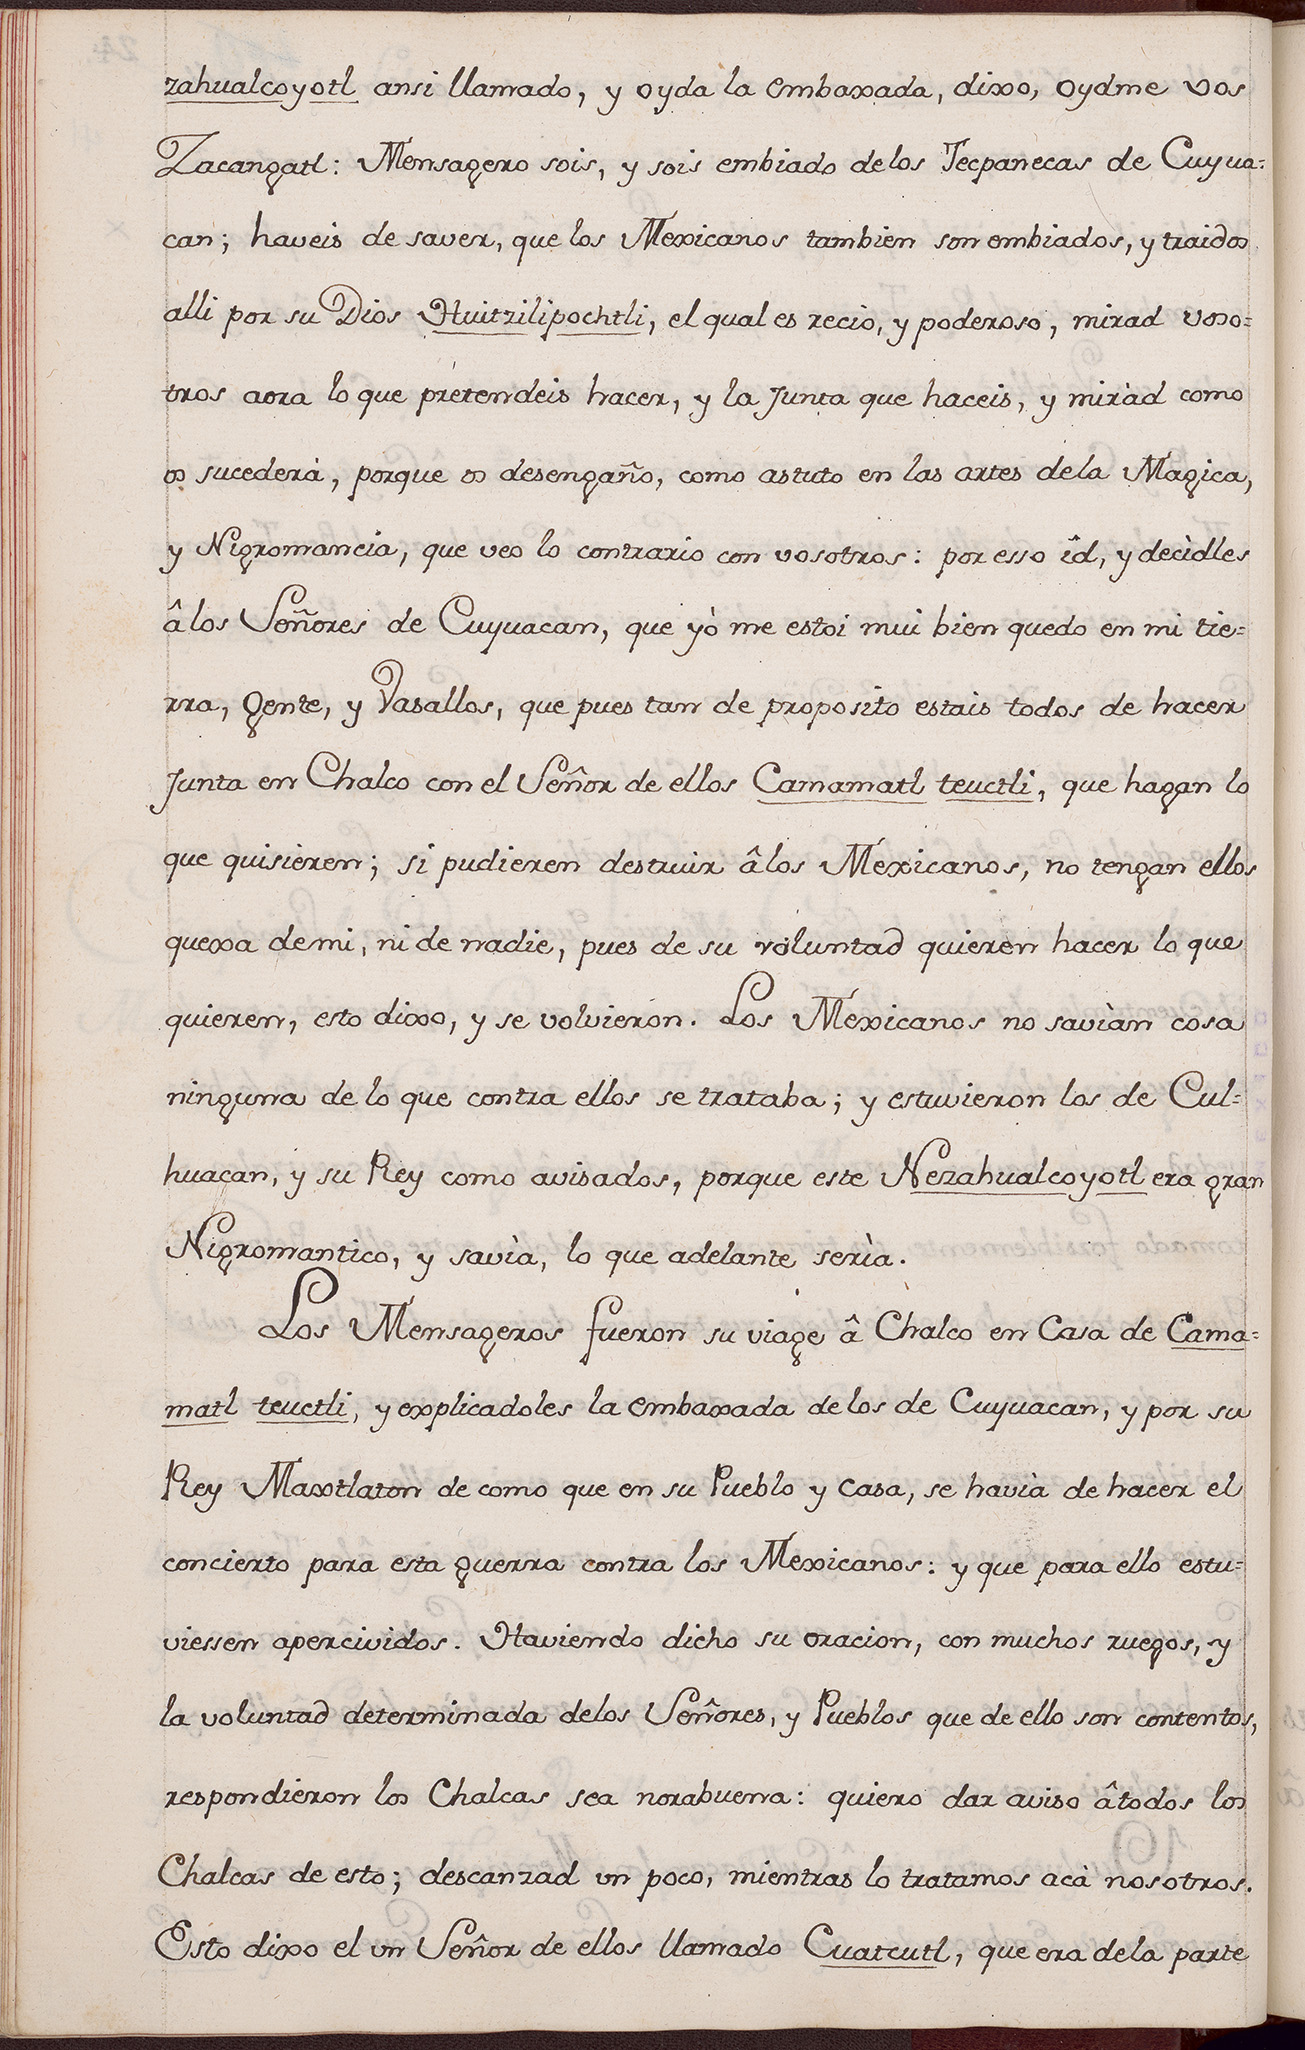 zahualcoyotl ansi llamado, y oyda la embaxada, dixo, oydme vos
Zacangatl: Mensagero sois, y sois embiado delos Tecpanecas de Cuyua=
can; haveis de saver, que los Mexicanos tambien son embiados, y traidos
alli por su Dios Huitzilipochtli, el qual es recio, y poderoso, mirad voso=
tros aora lo que pretendeis hacer, y la Junta que haceis, y miràd como
os sucederà, porque os desengaño, como astuto en las artes dela Magica,
y Nigromancia, que veo lo contrario con vosotros: por esso îd, y decìdles
â los Señores de Cuyuacan, que yò me estoi mui bien quedo en mi tie=
rra, gente, y Vasallos, que pues tan de proposito estais todos de hacer
Junta en Chalco con el Señor de ellos Camamatl teuctli, que hagan lo
que quisieren; si pudieren destruir â los Mexicanos, no tengan ellos
quexa demi, ni de nadie, pues de su voluntad quieren hacer lo que
quieren, esto dixo, y se volvieron. Los Mexicanos no savìan cosa
ninguna de lo que contra ellos se trataba; y estuvieron los de Cul=
huacan, y su Rey como avisados, porque este Nezahualcoyotl era gran
Nigromantico, y savìa, lo que adelante serìa.
Los Mensageros fueron su viage â Chalco en Casa de Cama=
matl teuctli, y explicadoles la embaxada delos de Cuyuacan, y por su
Rey Maxtlaton de como que en su Pueblo y casa, se havìa de hacer el
concierto para esta guerra contra los Mexicanos: y que para ello estu=
viessen apercividos. Haviendo dicho su oracion, con muchos ruegos, y
la voluntad determinada delos Señores, y Pueblos que de ello son contentos,
respondieron los Chalcas sea norabuena: quiero dar aviso âtodos los
Chalcas de esto; descanzad un poco, mientras lo tratamos acà nosotros.
Esto dixo el un Señor de ellos llamado Cuateutl, que era dela parte